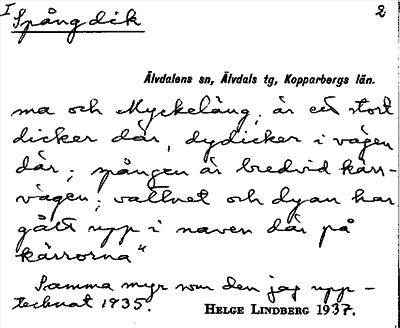 I Spångdik 2
Älvdalens sn, Älvdals tg, Kopparbergs län.
ma och Myckeläng, är ett stort
dicker där, dydicker i vägen
där; spången är bredvid kärr-
vägen; vattnet och dyan har
gått upp i naven där på
kärrorna"
Samma myr som den jag upp-
tecknat 1935. HELGE LINDBERG 1937.